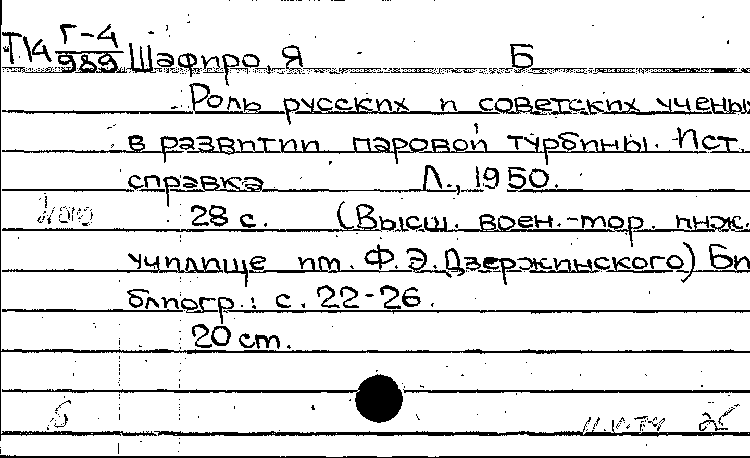 Т14 Г-4
989 Шафиро, Я Б
Роль русских и советских ученых
в развитии паровой турбины. Ист.
справка Л., 1950.
28 с. (Высш. воен.-мор. инж.
училище им. Ф.Э.Дзержинского) Би
блиогр.: с. 22-26.
20 cm.